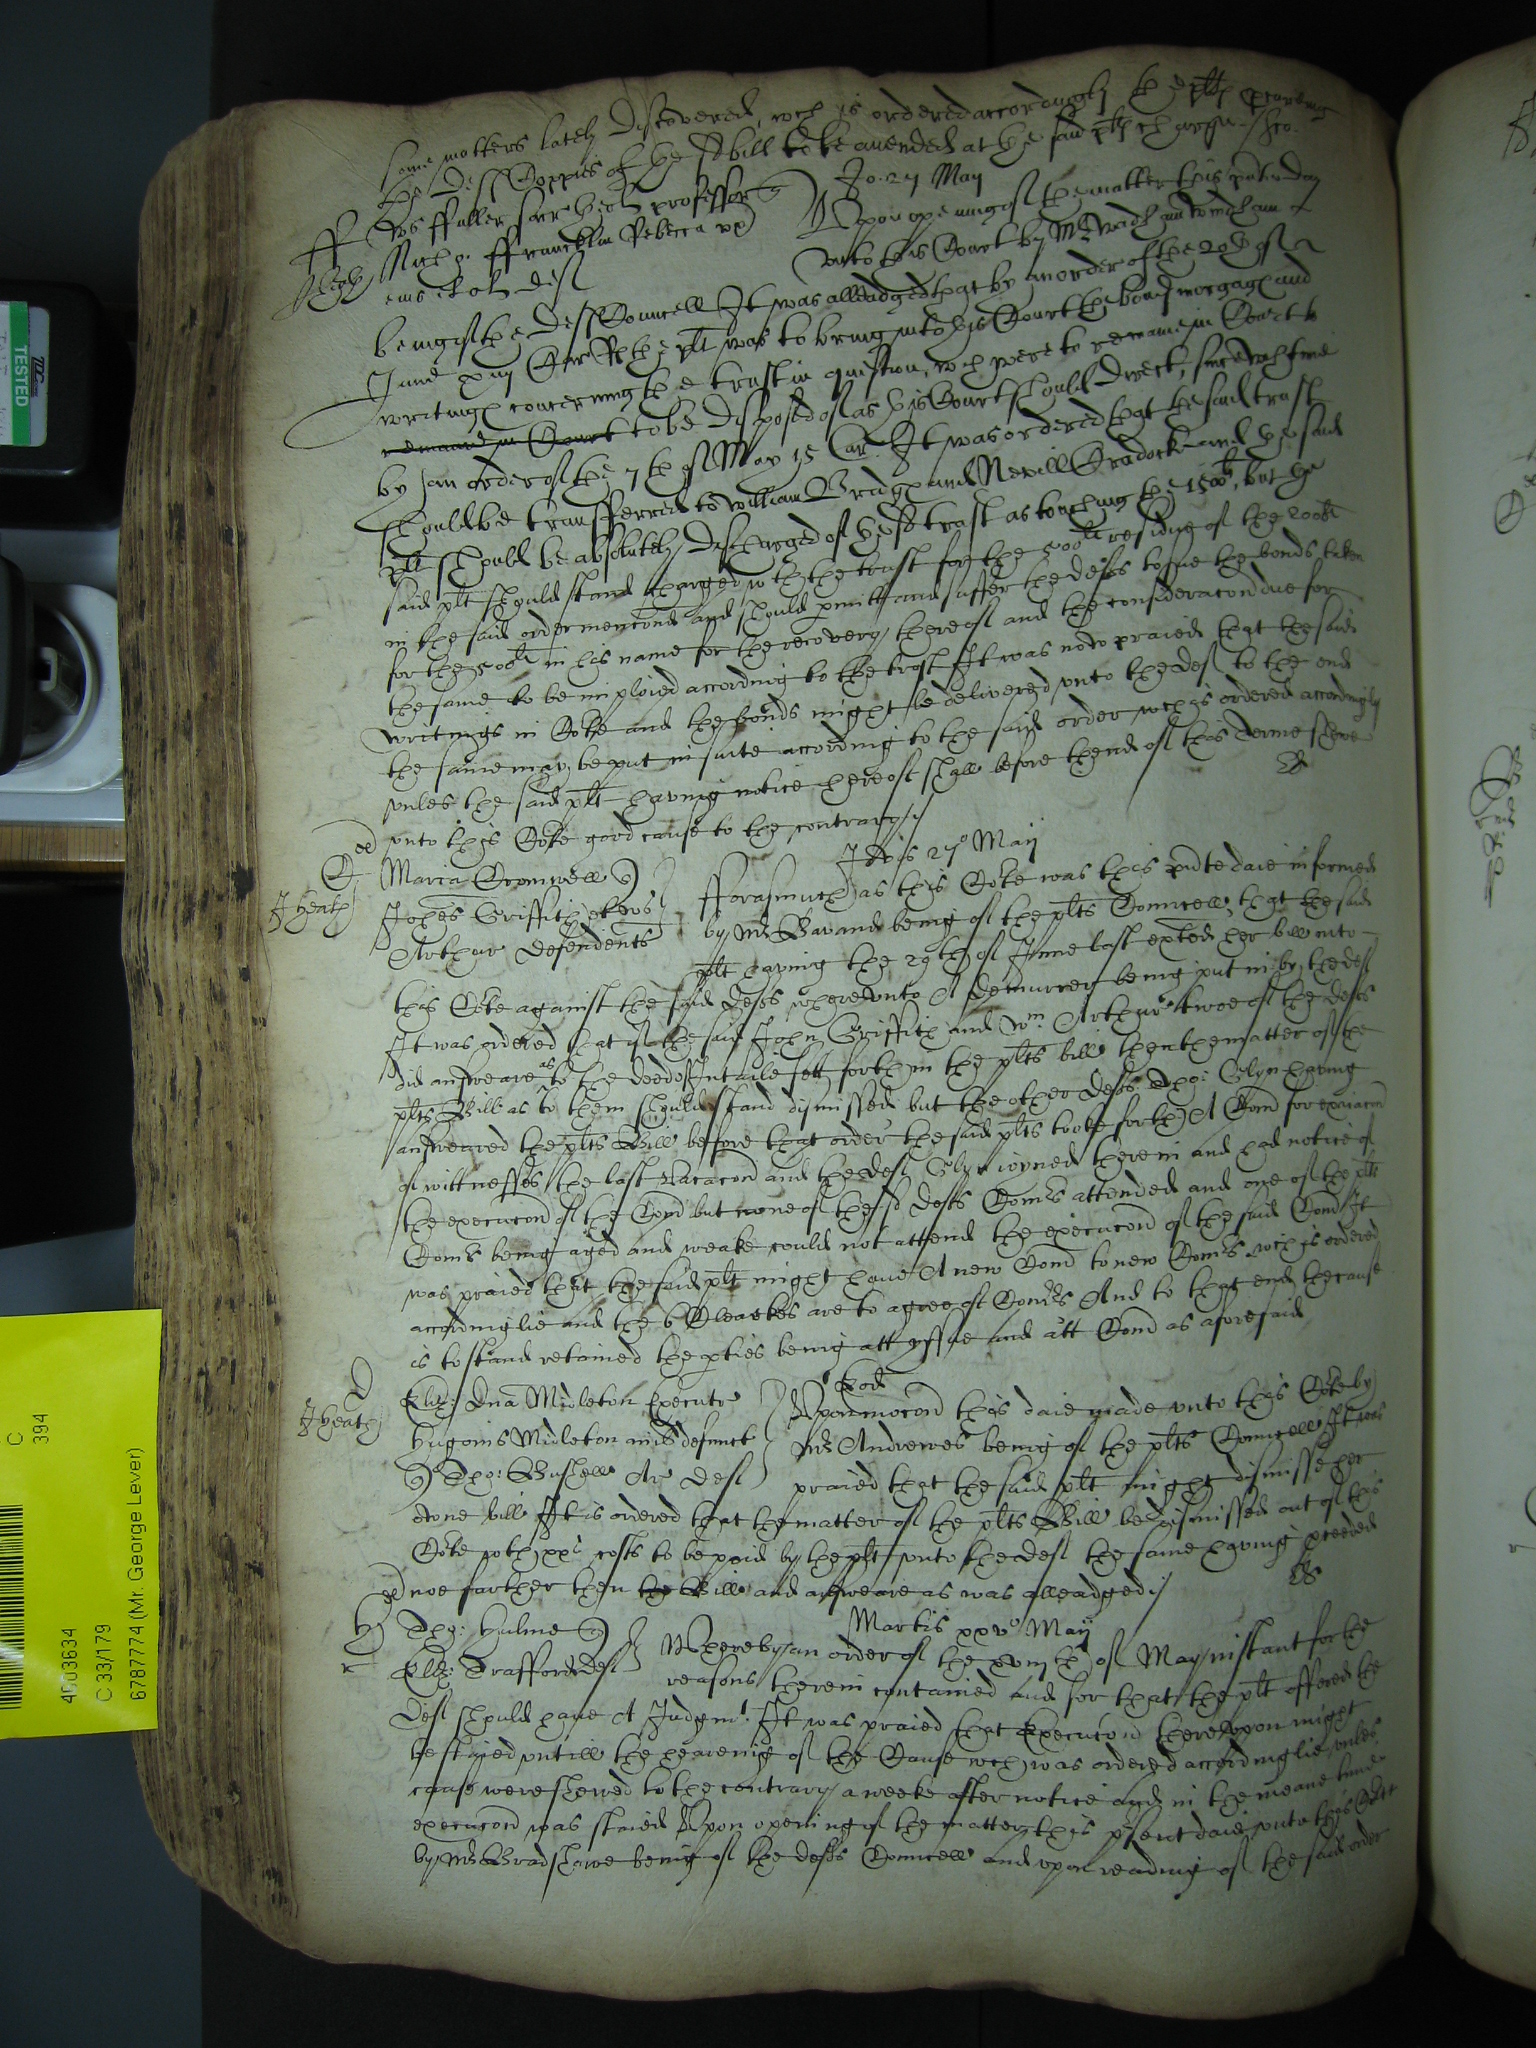 some matters lately discovered, wch is ordered accordingly the plt
the deftes Coppies of the sd bill to be amended at the said plts charge
Jo. 27 May
Tho ffuller sacr theol professor
Nich: ffrancklin Rebecca ux
eius et al def
Upon opening of the matter this pnte day
unto this Court by Mr
being of the defts Councell It was alleadged that by an order of the 20th of
June xiiij Car R the plt was to bring into this Court the bond morgage and
writinge concerning the trust in question, wch were to remaine in Court to
remaine in Court to be disposed of as this Court should direct, since wch time
by an order of the 7th of May 15 Car. It was ordered that the said trust
should be transferred to William Bridge and Nevill Cradocke and the said
plt should be absolutely discharged of the sd trust as touching the 1500li, but the
said plt should stand charged wth the trust for the 500li residue of the 2000li
in the said order menconed and should pmitt and suffer the defts to sue the bonds taken
for the 500li in his name for the recovery thereof and the consideracon due for
the same to be imploied according to the trust It was nowe praied that the said
writings in Cote and the bonds might be delivered unto the def to the end
the same may be put in suite according to the said order wch is ordered accordingly
unles the said plt having notice hereof shall before thend of this Terme shewe
unto this Cote good cause to the contrary
Jovis 27o Maij
C
J Heath
Maria Cromwell
Johes Griffith
Arthur defendents
fforasmuch as this Cote was this pnte daie informed
by Mr Bavand being of the plts Councell, that the said
plt having the 29th of June last exhted her bill into
this Cote against the said defts whereunto A demurrer being put in by the def
It was ordered that if the said John Griffith and Wm Arthur twoe of the defts
did answeare as to the deede of Intaile sett forth in the plts bill then the matter of the
plts Bill as to them should stand dismissed but the other deft Tho: Glyn having
answeared the plts Bill before that order the said plts tooke forth A Comn for exiacon
of wittnesses the last vacacon and the def Glyn ioyned therein and had notice of
the execucon of the Comn but none of the sd defts Comrs attended and one of the plts
Comrs being aged and weake could not attend the execucon of the said Comn It
was praied that the said plt might have A new Comn to new Comrs wch is ordered
accordinglie and the 6 Clearkes are to agree of Comrs And to that end the cause
is to stand retained the pties being att yssue and att Comn as aforesaid
Eod
J Heath
Eliz: Dna Midleton Execute
Hugonis Midleton mil defunct
Tho: Bushell Ar def
Upon mocon this daie made unto this Cote by
Mr Andrewes being of the plts Councell It was
praied that the said plt might dismisse her
owne bill It is ordered that the matter of the plts Bill be dismissed out of this
Cote wth xxs costs to be paid by the plt unto the def the same having pceeded
noe further then the Bill and answeare as was alleadged
Martis xxvo Maij
Tho: Hulme
Eliz: Trafford def
Whereby an order of the xviijth of May instant for the
reasons therein contained and for that the plt offered the
def should have A Judgmt It was praied that Execucon thereupon might
be staied untill the heareing of the Cause wch was ordered accordinglie unles
cause were shewed to the contrary a weeke after notice and in the meane time
execucon was staied Upon opening of the matter this psent daie unto this Cote
by Mr Bradshawe being of the defts Councell and upon reading of the said order
TESTED
C
394
4003634
C 33/179
6787774 (Mr. George Lever)